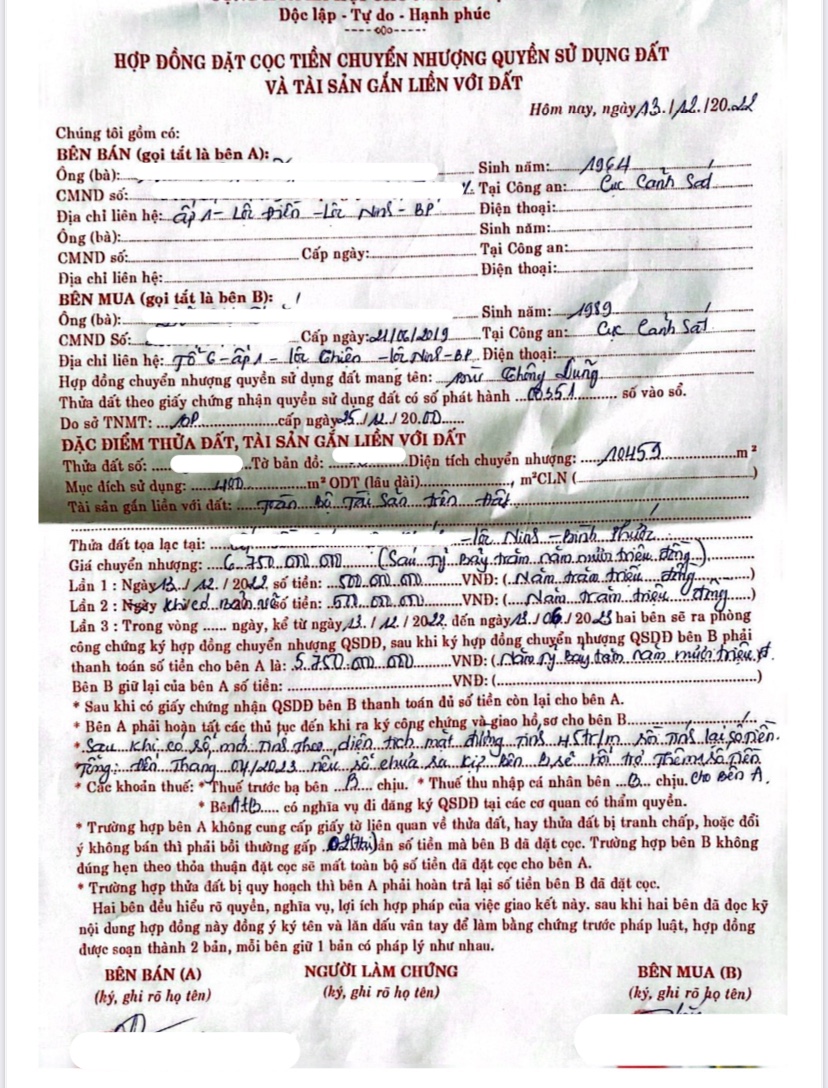 Độc lập - Tự do - Hạnh phúc
HỢP ĐỒNG ĐẶT CỌC TIỀN CHUYỂN NHƯỢNG QUYỀN SỬ DỤNG ĐẤT
VÀ TÀI SẢN GẮN LIỀN VỚI ĐẤT
Hôm nay, ngày 13./12./2022
Chúng tôi gồm có:
BÊN BÁN (gọi tắt là bên A):
Ông (bà): Sinh năm: 1964
CMND số: Tại Công an: Cục Cảnh Sát
Địa chỉ liên hệ: ấp 1 - Lộc Điền - Lộc Ninh - BP Điện thoại:
Ông (bà): Sinh năm:
CMND số: Cấp ngày: Tại Công an:
Địa chỉ liên hệ: Điện thoại:
BÊN MUA (gọi tắt là bên B):
Ông (bà): Sinh năm: 1989
CMND Số: Cấp ngày: 21/06/2019 Tại Công an: Cục Cảnh Sát
Địa chỉ liên hệ: Tổ 6 - ấp 1 - Lộc Thiện - Lộc Ninh - BP Điện thoại:
Hợp đồng chuyển nhượng quyền sử dụng đất mang tên: Dũng
Thửa đất theo giấy chứng nhận quyền sử dụng đất có số phát hành 00351 số vào sổ.
Do sở TNMT: BP cấp ngày 25/12/2000
ĐẶC ĐIỂM THỬA ĐẤT, TÀI SẢN GẮN LIỀN VỚI ĐẤT
Thửa đất số: Tờ bản đồ: Diện tích chuyển nhượng: 10459 m²
Mục đích sử dụng: m² ODT (lâu dài), m²CLN ( )
Tài sản gắn liền với đất: Toàn bộ Tài Sản trên đất
Thửa đất tọa lạc tại: - Lộc Ninh - Bình Phước
Giá chuyển nhượng: 6.750.000.000 (Sáu Tỷ Bảy trăm năm mươi triệu đồng)
Lần 1 : Ngày 13 / 12 / 2022 số tiền: 500.000.000 VNĐ: (Năm trăm triệu đồng)
Lần 2 : Ngày khi có bản vẽ số tiền: 500.000.000 VNĐ: (Năm trăm triệu đồng)
Lần 3 : Trong vòng ...... ngày, kể từ ngày 13 / 12 / 2022 đến ngày 13 / 06 / 2023 hai bên sẽ ra phòng
công chứng ký hợp đồng chuyển nhượng QSDĐ, sau khi ký hợp đồng chuyển nhượng QSDĐ bên B phải
thanh toán số tiền cho bên A là: 5.750.000.000 VNĐ: (Năm tỷ bảy trăm năm mươi triệu đ.
Bên B giữ lại của bên A số tiền: VNĐ: ( )
* Sau khi có giấy chứng nhận QSDĐ bên B thanh toán đủ số tiền còn lại cho bên A.
* Bên A phải hoàn tất các thủ tục đến khi ra ký công chứng và giao hồ sơ cho bên B
* Sau khi có sổ mới Tính theo diện tích mặt đường Tính 45tr/m rồi Tính lại số tiền.
* Tổng: đến Tháng 04/2023 nếu sổ chưa ra kịp bên B sẽ hỗ trợ Thêm số tiền
* Các khoản thuế: * Thuế trước bạ bên B chịu. * Thuế thu nhập cá nhân bên B chịu. cho bên A.
* Bên A+B có nghĩa vụ đi đăng ký QSDĐ tại các cơ quan có thẩm quyền.
* Trường hợp bên A không cung cấp giấy tờ liên quan về thửa đất, hay thửa đất bị tranh chấp, hoặc đổi
ý không bán thì phải bồi thường gấp lần số tiền mà bên B đã đặt cọc. Trường hợp bên B không
đúng hẹn theo thỏa thuận đặt cọc sẽ mất toàn bộ số tiền đã đặt cọc cho bên A.
* Trường hợp thửa đất bị quy hoạch thì bên A phải hoàn trả lại số tiền bên B đã đặt cọc.
Hai bên đều hiểu rõ quyền, nghĩa vụ, lợi ích hợp pháp của việc giao kết này. sau khi hai bên đã đọc kỹ
nội dung hợp đồng này đồng ý ký tên và lăn dấu vân tay để làm bằng chứng trước pháp luật, hợp đồng
được soạn thành 2 bản, mỗi bên giữ 1 bản có pháp lý như nhau.
BÊN BÁN (A) NGƯỜI LÀM CHỨNG BÊN MUA (B)
(ký, ghi rõ họ tên) (ký, ghi rõ họ tên) (ký, ghi rõ họ tên)